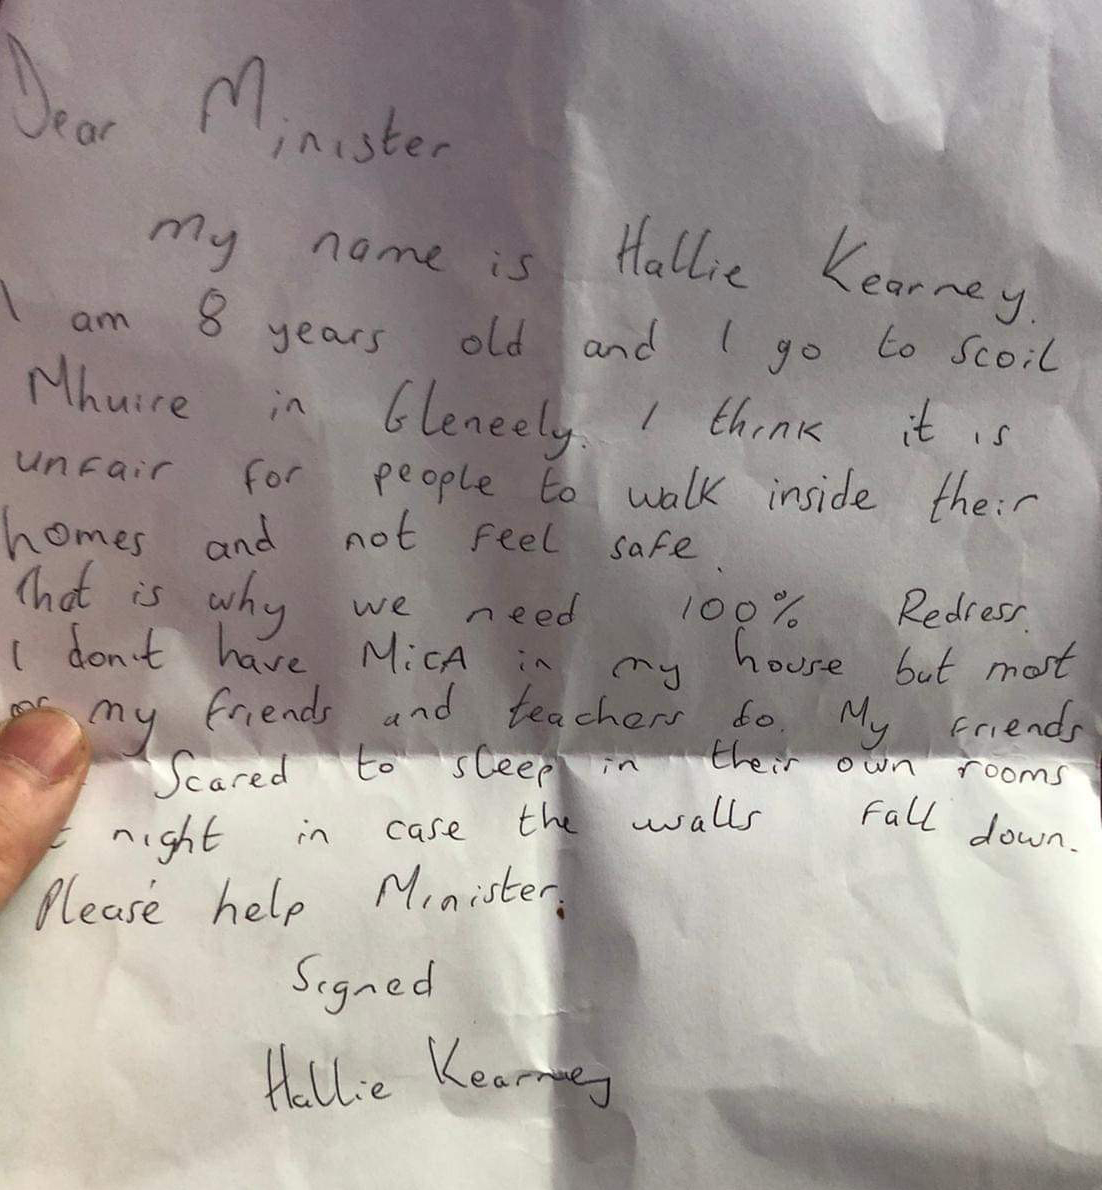 Dear Minister
My name is Hallie Kearney.
I am 8 years old and I go to Scoil
Mhuire in Gleneely. I think it is
unfair for people to walk inside their
homes and not feel safe.
That is why we need 100% Redress.
I don't have MicA in my house but most
of my friends and teachers do. My friends
Scared to sleep in their own rooms
night in case the walls fall down.
Please help Minister.
Signed
Hallie Kearney